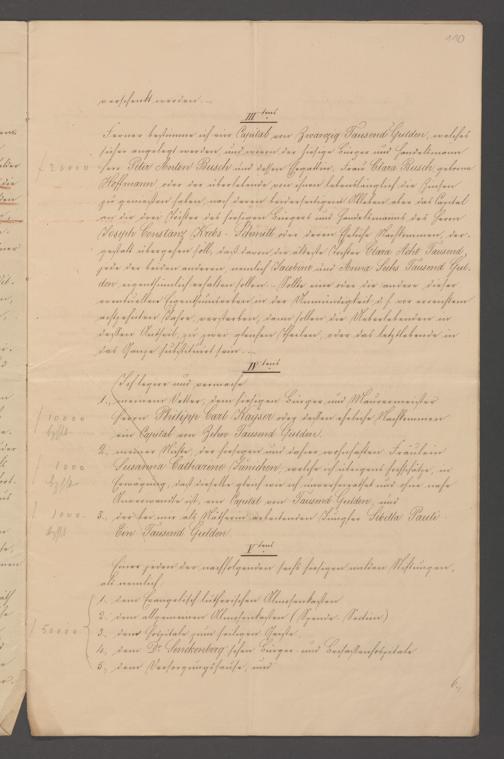 110
verschenkt werden. —
III tens
Ferner bestimme ich ein Capital von Zwanzig Tausend Gulden, welches
sicher angelegt werden, und wovon der hiesige Bürger und Handelsmann
/ 20000 Herr Peter Anton Busch und dessen Ehegattin, Frau Clara Busch, geborne
Hoffmann, oder der überlebende von ihnen lebenslänglich die Zinsen
zu genießen haben, nach deren beiderseitigem Ableben aber das Capital
an die drei Töchter des hiesigen Bürgers und Handelsmanns des Herrn
Joseph Constanz Krebs-Schmitt oder deren eheliche Nachkommen, der-
gestalt übergehen soll, daß davon die älteste Tochter Clara Acht Tausend,
jede der beiden anderen, nemlich Jacobine und Anna Sechs Tausend Gul-
den eigenthümlich erhalten sollen. — Sollte eine oder die andere dieser
eventuellen Eigenthümerinnen in der Unmündigkeit d. h. vor erreichtem
achtzehnten Jahre, versterben, dann sollen die Ueberlebenden in
dessen Antheil zu zwei gleichen Theilen, oder das letztlebende in
das Ganze substituirt sein. —
IV tens
Ich legire und vermache
1., meinem Vetter, dem hiesigen Bürger und Maurermeister
/ 10000 Herrn Philipp Carl Kayser oder dessen eheliche Nachkommen
ein Capital von Zehn Tausend Gulden.
2., meiner Nichte, der hiesigen und dahier wohnhaften Fräulein
/ 1000 Susanna Catharine Jänichen, welche ich übrigens hochschätze, in
Erwägung, daß dieselbe gleich wie ich unverheirathet und ohne nahe
Anverwandte ist, ein Capital von Tausend Gulden, und
/ 1000 3., der bei mir als Nätherin arbeitenden Jungfer Sibilla Pauli
Ein Tausend Gulden.
V tens
Einer jeden der nachfolgenden sechs hiesigen milden Stiftungen,
als nemlich
1., dem Evangelisch lutherischen Almosenkasten
2., dem allgemeinen Almosenkasten (Spende-Section)
/ 50000 3., dem Hospitale zum heiligen Geiste
4., dem Dr Senckenberg'schen Bürger- und Beisassenhospitale
5., dem Versorgungshause, und
6.,